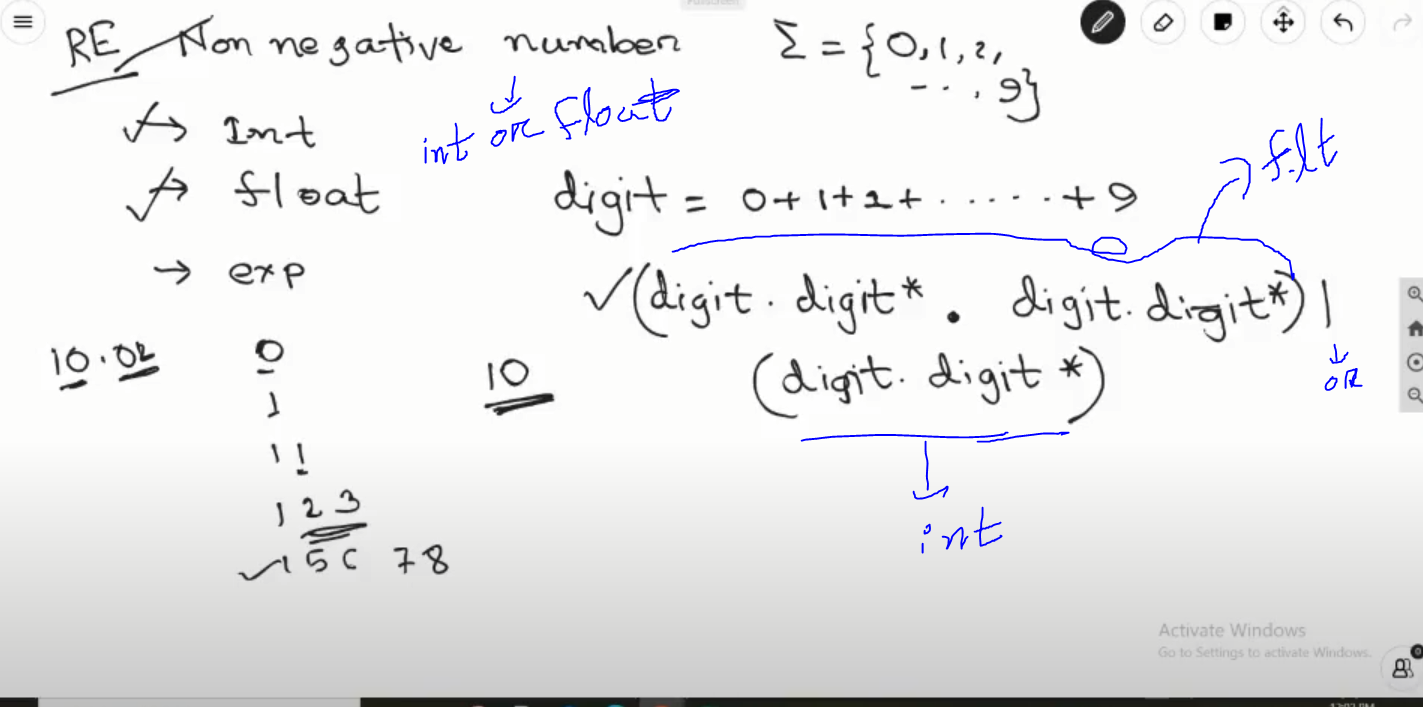 Fullscreen
RE Non negative number Σ = {0, 1, 2,
- . . , 9}
→ Int
int OR float
→ float
flt
digit = 0 + 1 + 2 + . . . . . . + 9
→ exp
(digit . digit* . digit . digit*) |
OR
(digit . digit *)
10.02
0
10
1
11
int
1 2 3
1 5 6 7 8
Activate Windows
Go to Settings to activate Windows.
0